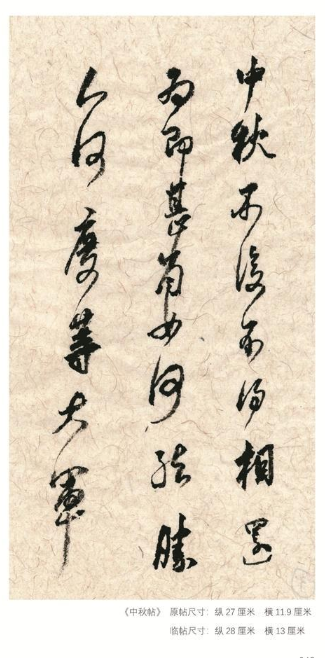 中秋不復不得相還
為即甚省如何然勝
人何慶等大軍
《中秋帖》 原帖尺寸：纵 27 厘米 横 11.9 厘米
临帖尺寸：纵 28 厘米 横 13 厘米